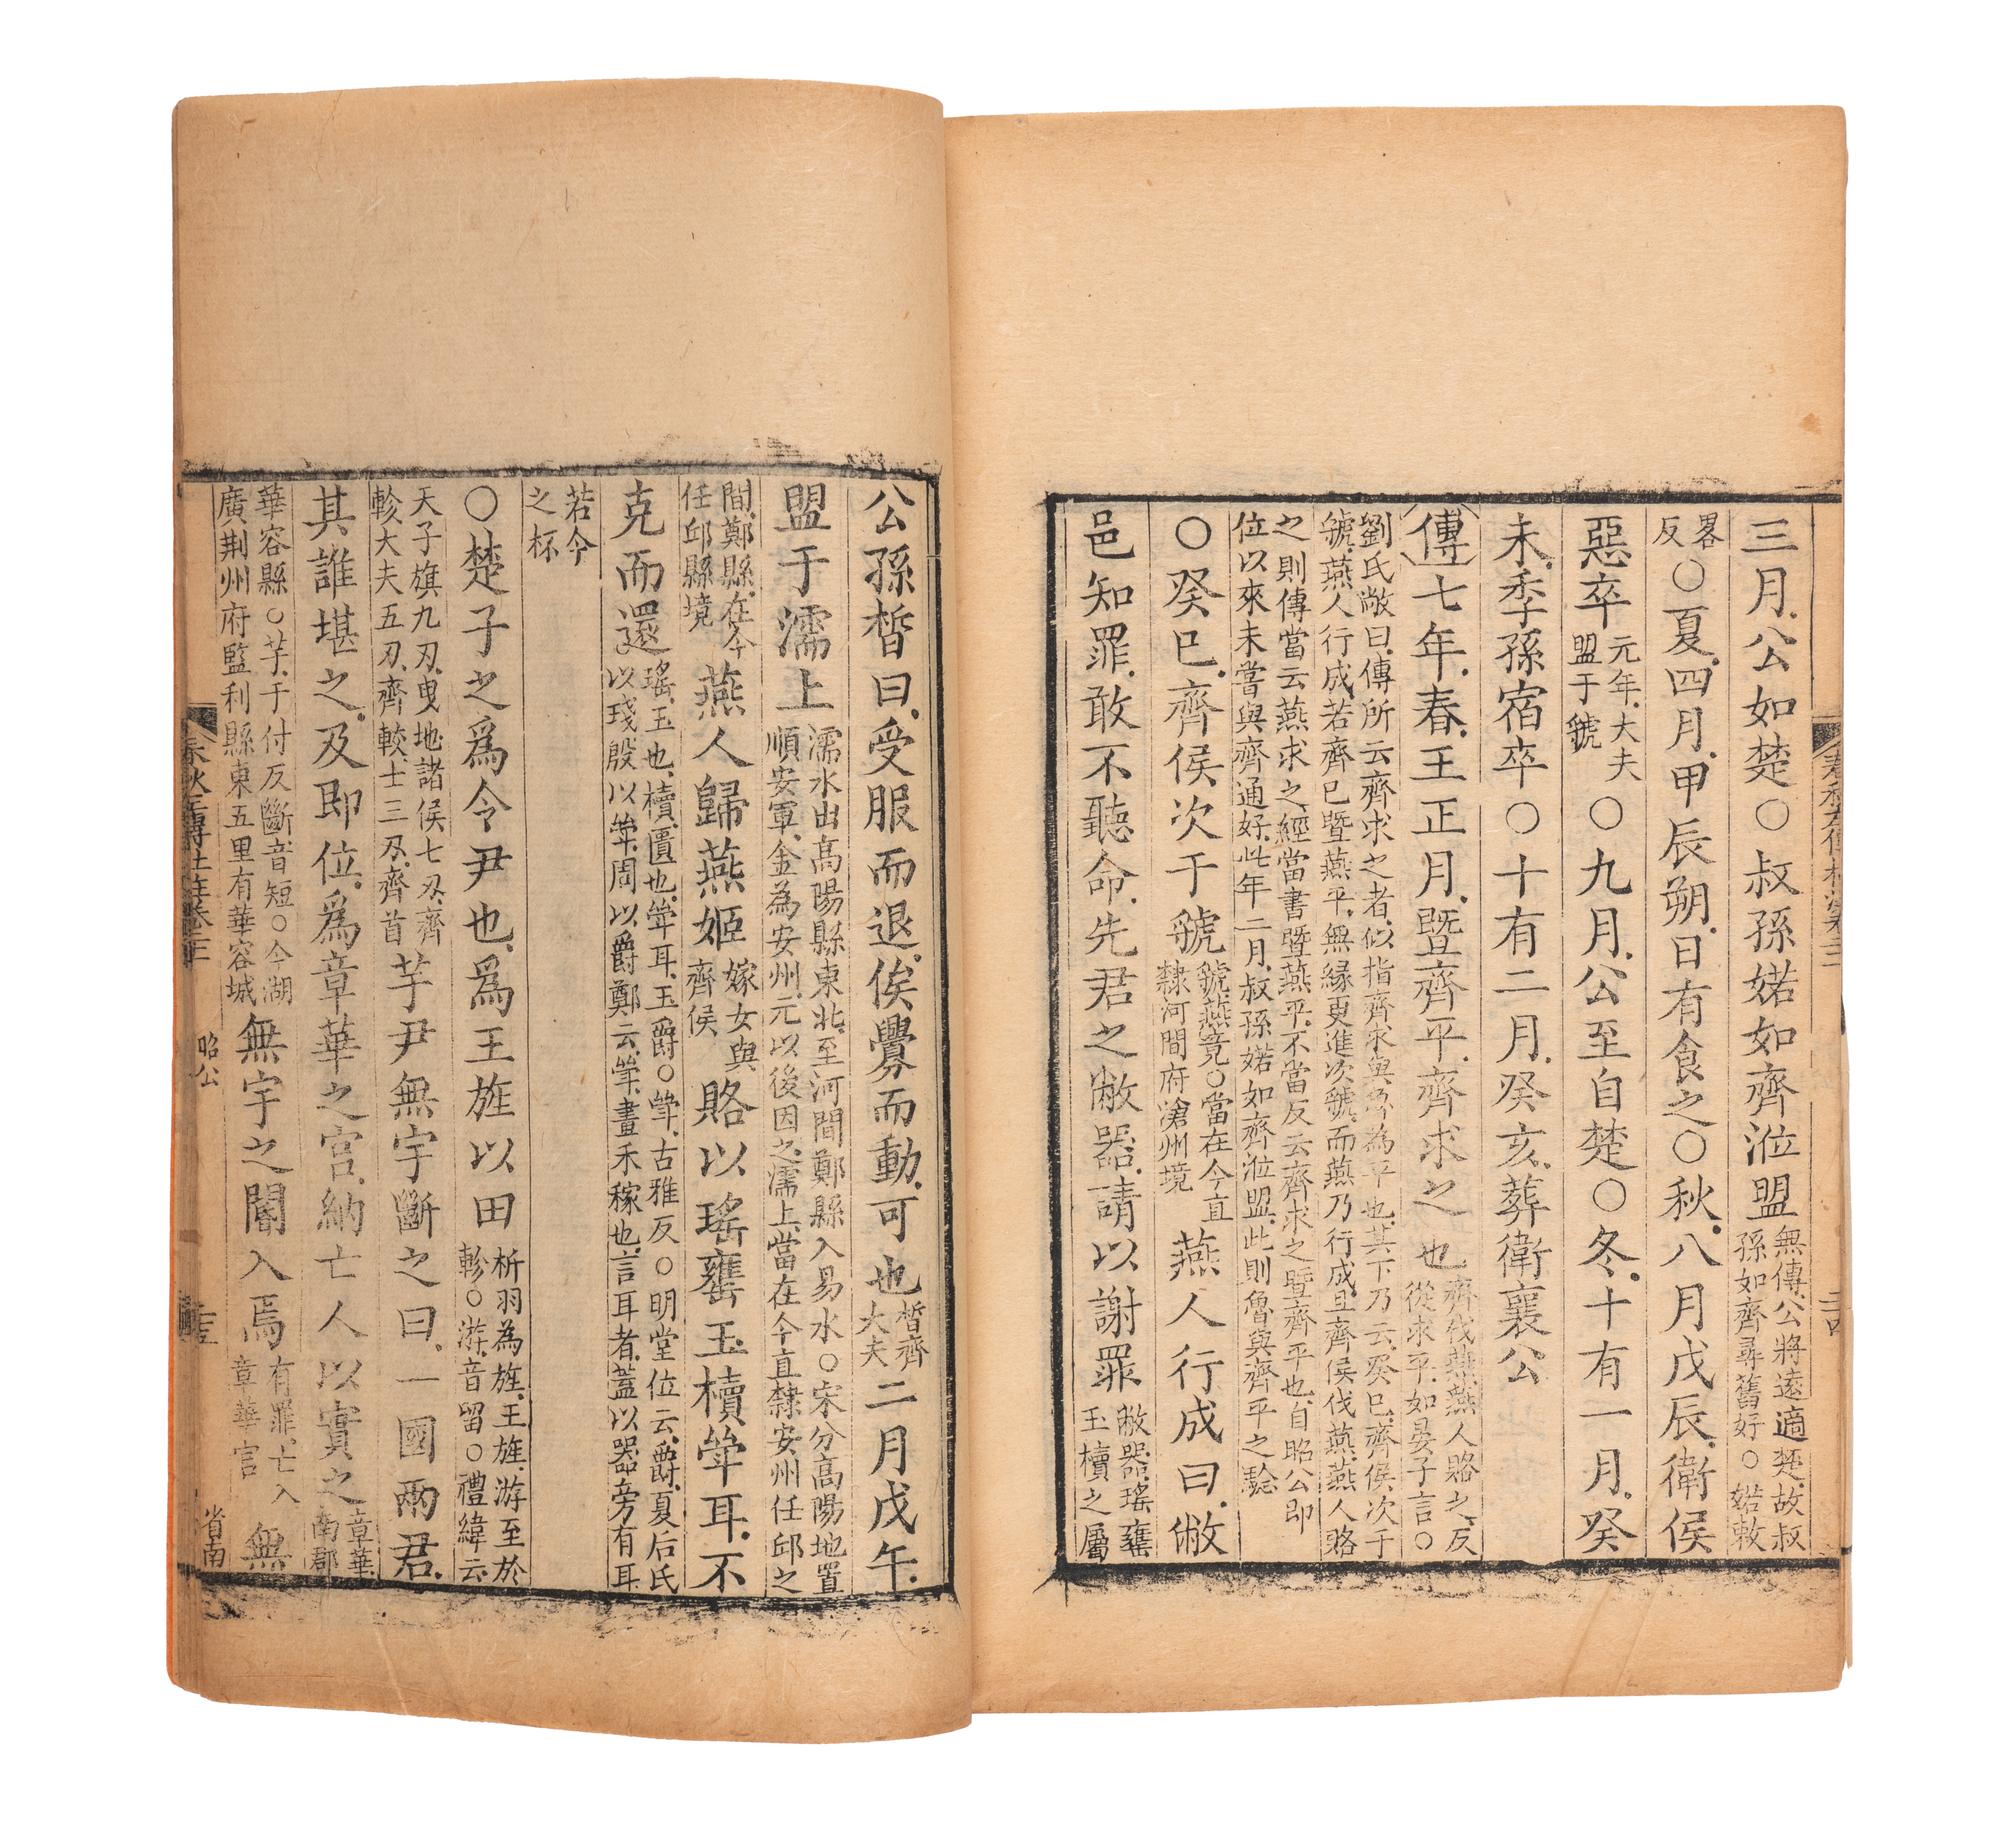 三月公如楚○叔孫婼如齊涖盟無傳公將遠適楚故叔孫如齊尋舊好○婼敕
畧反○夏四月甲辰朔日有食之○秋八月戊辰衛侯
惡卒元年大夫盟于虢○九月公至自楚○冬十有一月癸
未季孫宿卒○十有二月癸亥葬衛襄公
傳七年春王正月暨齊平齊求之也齊伐燕燕人賂之反從求平如晏子言○
劉氏敞曰傳所云齊求之者似指齊求與魯為平也其下乃云癸巳齊侯次于
虢燕人行成若齊已暨燕平無緣更進次虢而燕乃行成且齊侯伐燕燕人賂
之則傳當云燕求之經當書暨燕平不當反云齊求之暨齊平也自昭公即
位以來未嘗與齊通好此年二月叔孫婼如齊涖盟此則魯與齊平之驗
○癸巳齊侯次于虢虢燕竟○當在今直隸河間府滄州境燕人行成曰敝
邑知罪敢不聽命先君之敝器請以謝罪敝器瑤罋玉櫝之屬
公孫晳曰受服而退俟釁而動可也晳齊大夫二月戊午
盟于濡上濡水出高陽縣東北至河間鄚縣入易水○宋分高陽地置順安軍金為安州元以後因之濡上當在今直隸安州任邱之
間鄚縣在今任邱縣境燕人歸燕姬嫁女與齊侯賂以瑤罋玉櫝斝耳不
克而還瑤玉也櫝匱也斝耳玉爵○斝古雅反○明堂位云爵夏后氏以琖殷以斝周以爵鄭云斝畫禾稼也言耳者蓋以器旁有耳
若今之杯
○楚子之爲令尹也爲王旌以田析羽為旌王旌游至於軫○游音留○禮緯云
天子旗九刃曳地諸侯七刃齊軫大夫五刃齊較士三刃齊首芋尹無宇斷之曰一國兩君
其誰堪之及即位爲章華之宮納亡人以實之章華南郡
華容縣○芋于付反斷音短○今湖廣荆州府監利縣東五里有華容城無宇之閽入焉有罪亡入章華宮無
春秋左傳杜注卷三
昭公
省南